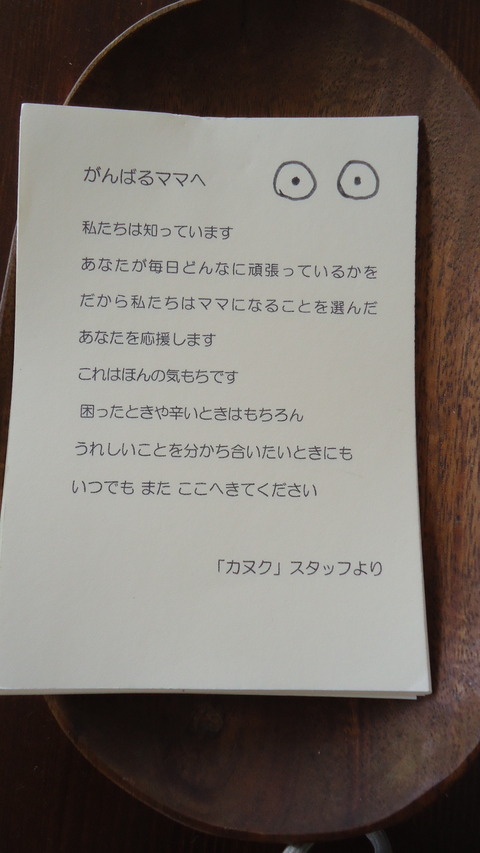 がんばるママへ
私たちは知っています
あなたが毎日どんなに頑張っているかを
だから私たちはママになることを選んだ
あなたを応援します
これはほんの気もちです
困ったときや辛いときはもちろん
うれしいことを分かち合いたいときにも
いつでも また ここへきてください
「カヌク」スタッフより